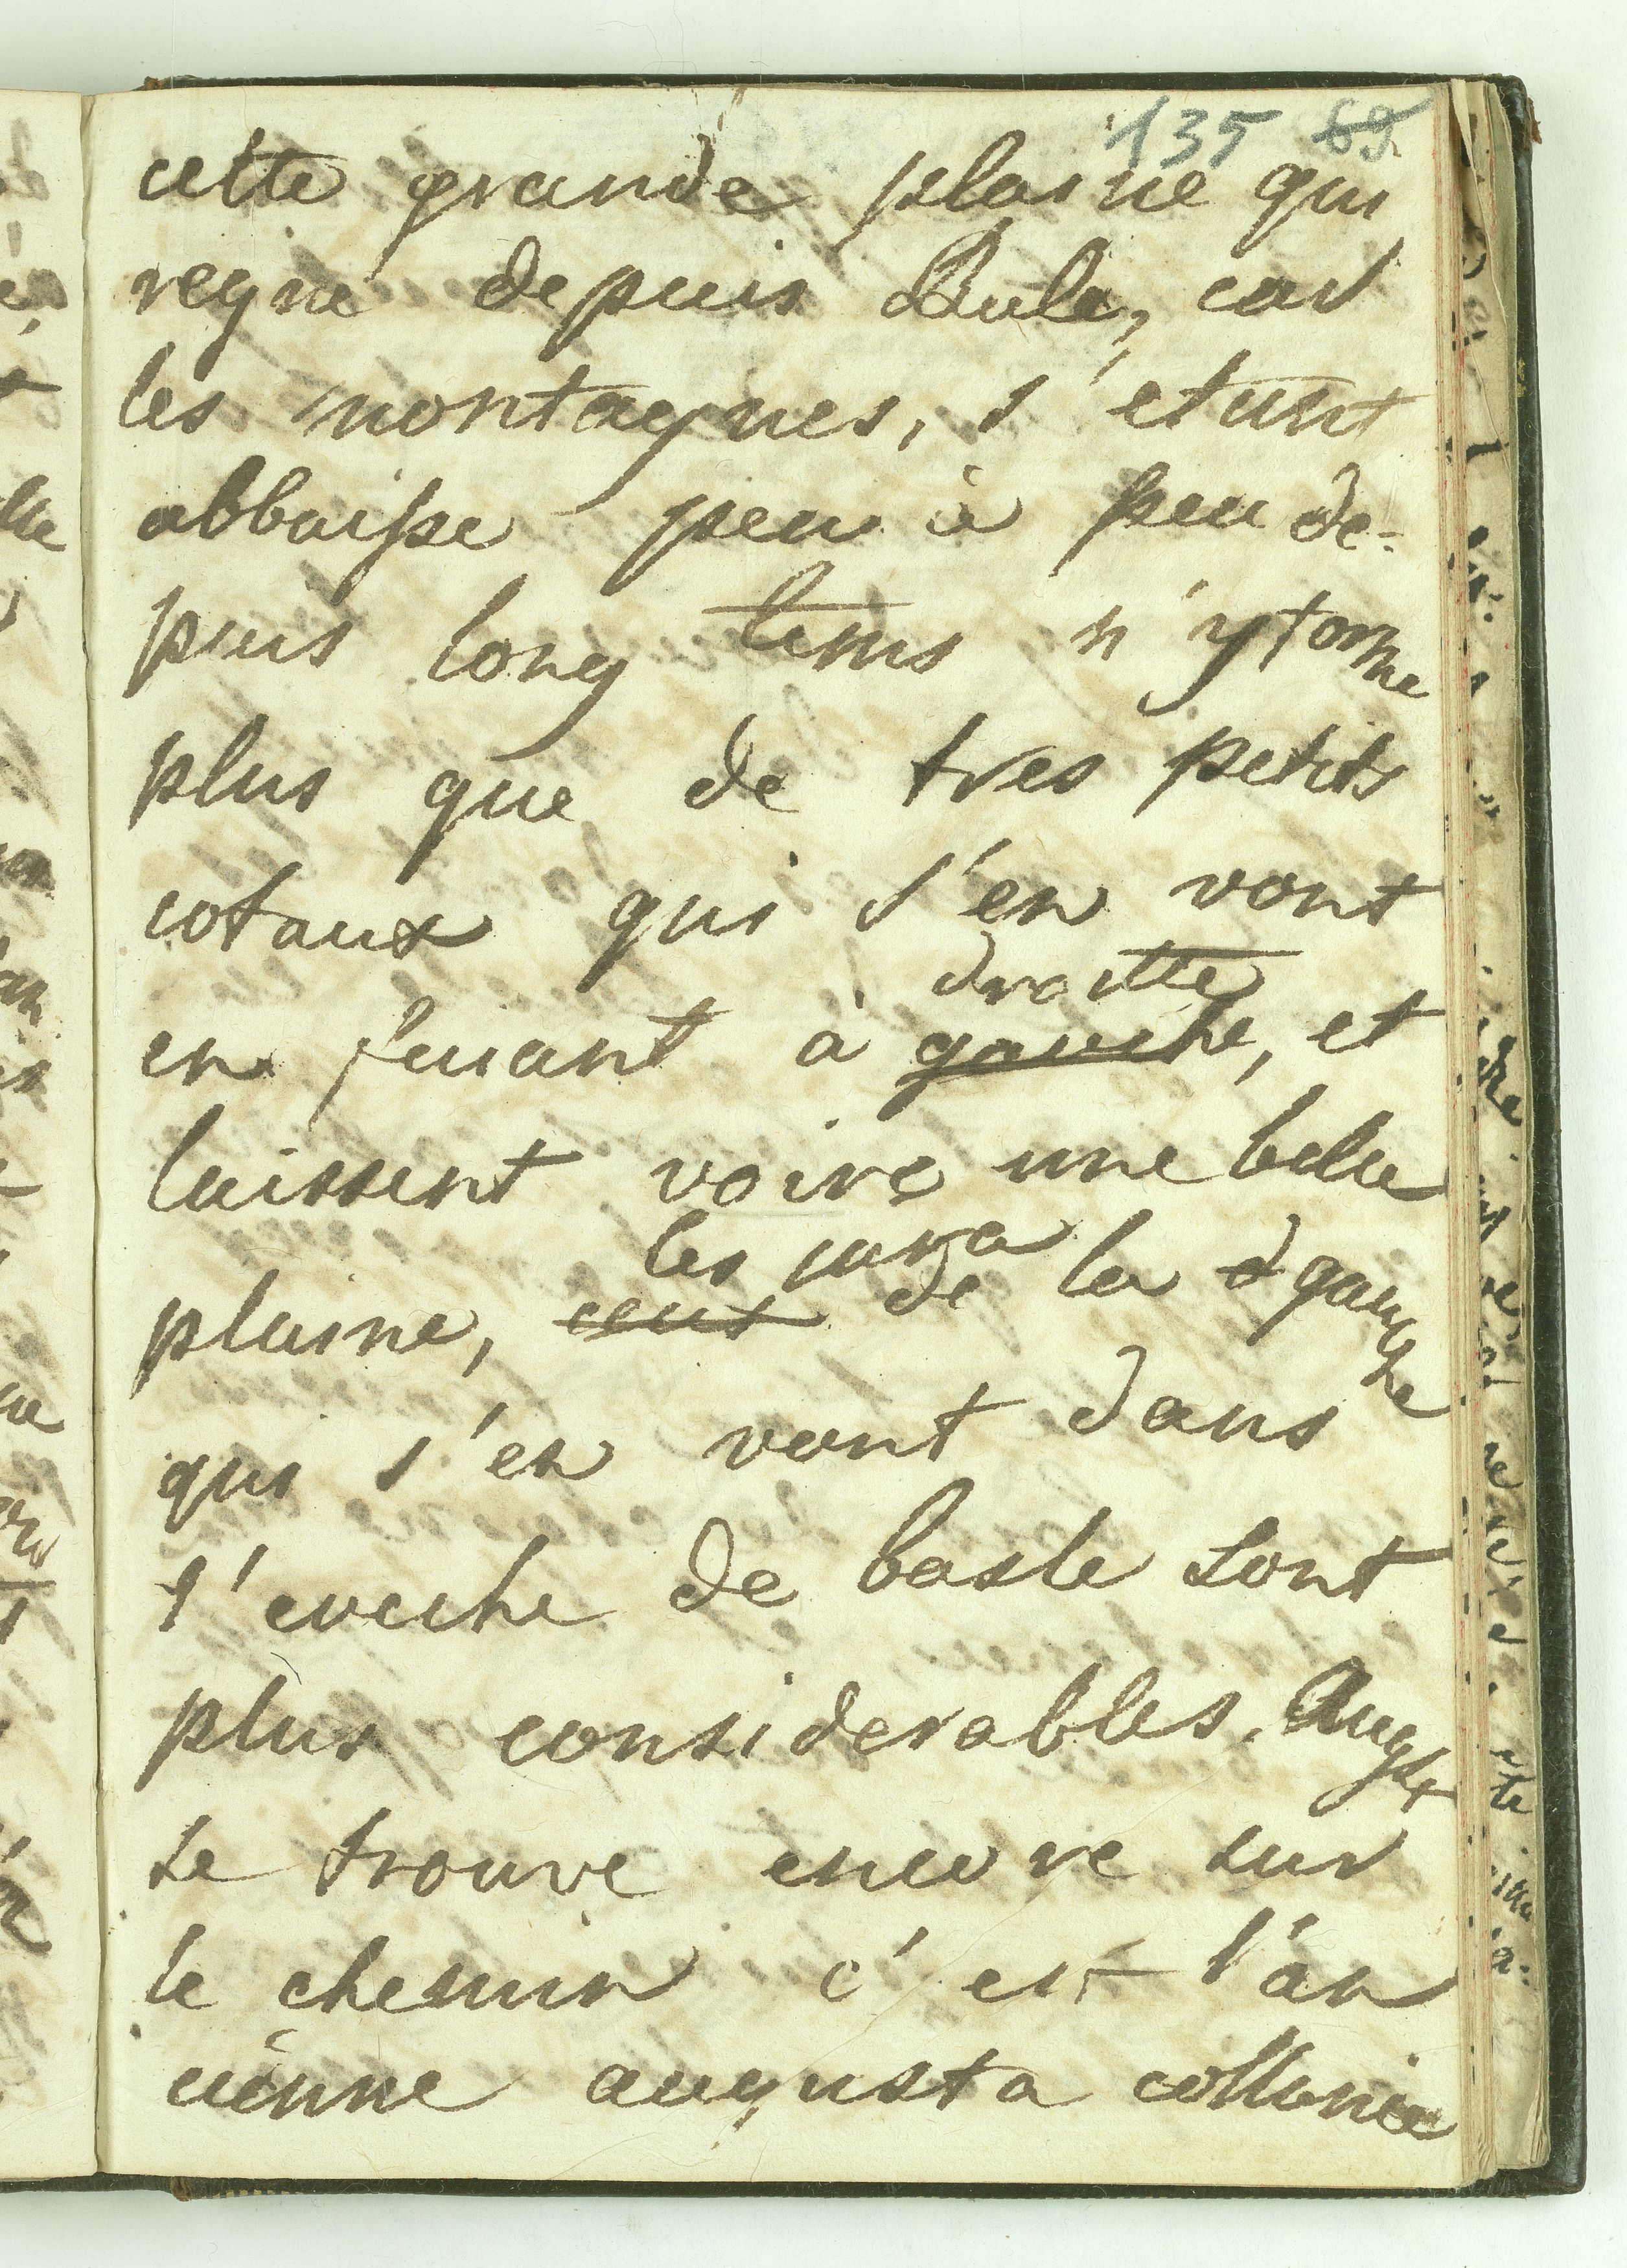 135 69
cette grande plaine qui
regne depuis Bale, car
les montagnes, s'etant
abbaisse peu à peu de-
puis long tems n'y forme
plus que de tres petits
cotaux qui s'en vont
droitte
en fuiant à gauche, et
laissent voire une belle
les jura
plaine, ceux de la d gauche
qui s'en vont dans
l'eveche de basle sont
plus considerables. Augst
se trouve encore sur
le chemin c'est l'an
cienne augusta collonie